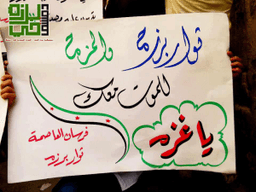 ثوار برزة والمزة
للموت معك
يا غزه
فرسان العاصمة
ثوار برزه